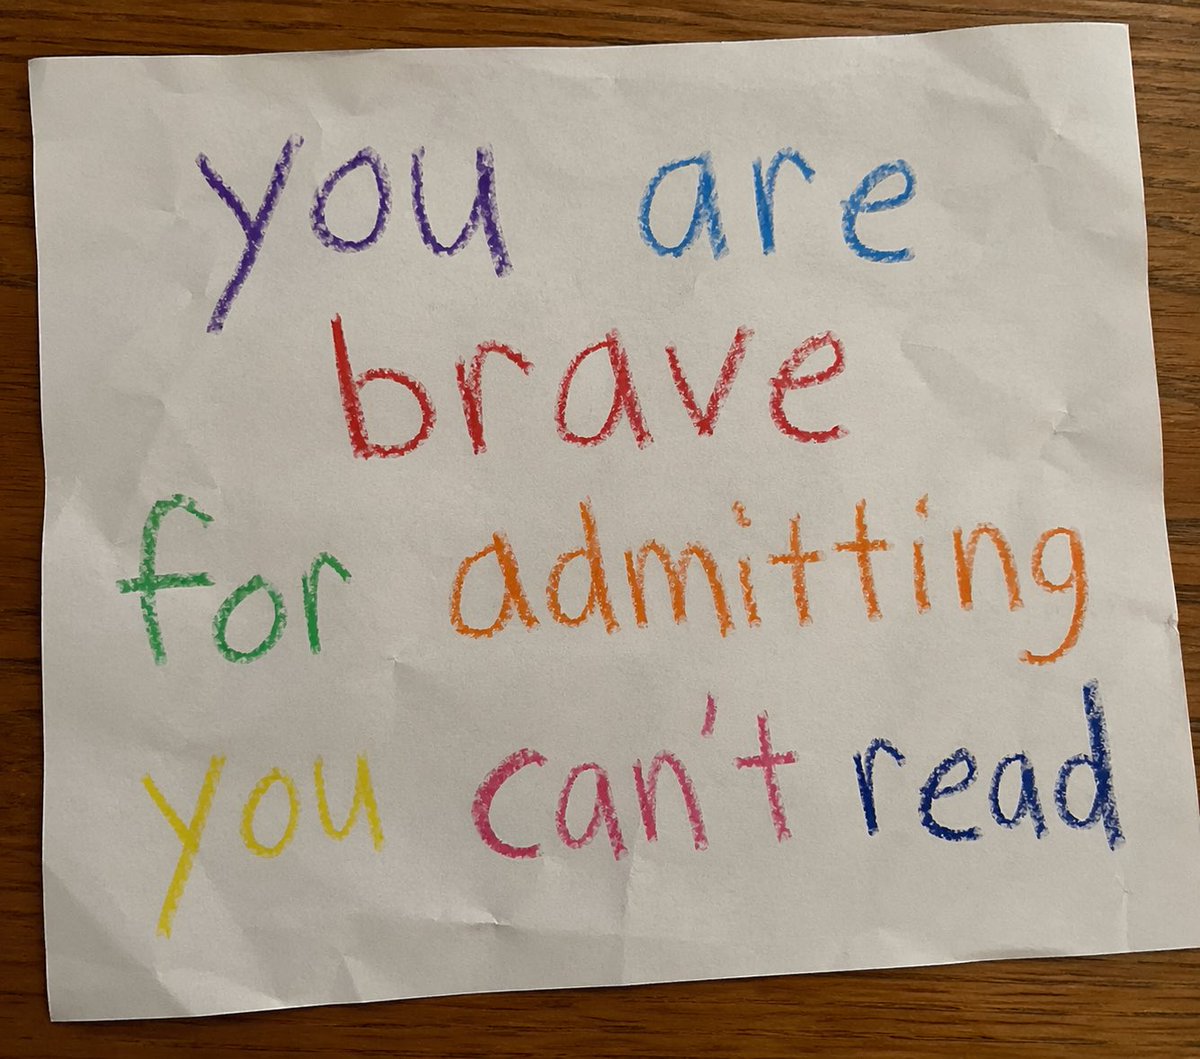 you are
brave
for admitting
you can't read